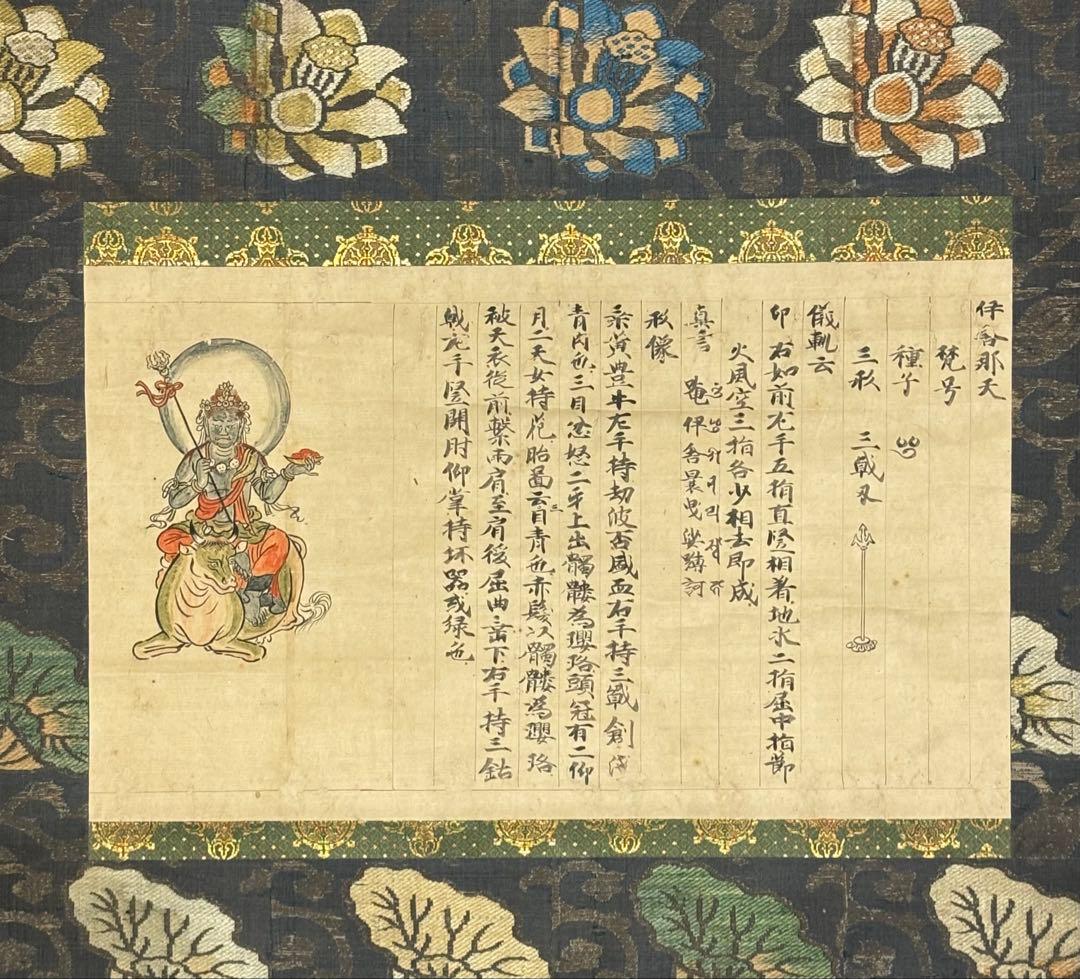 伊舎那天
梵号
種子
三形 三戟叉
儀軌云
印 右如前左手五指直竪相著地水二指屈中指節
火風空三指各少相去即成
真言 唵伊舎曩曳娑嚩訶
形像
乗黄豊牛左手持劫波盃盛血右手持三戟創
青肉色三目忿怒二牙上出髑髏為瓔珞頭冠有二仰
月二天女持花胎啚云目青色赤髪以髑髏為瓔珞
被天衣従前繋両肩至肩後屈曲垂下右手持三鈷
戟左手竪開肘仰掌持坏器或緑色